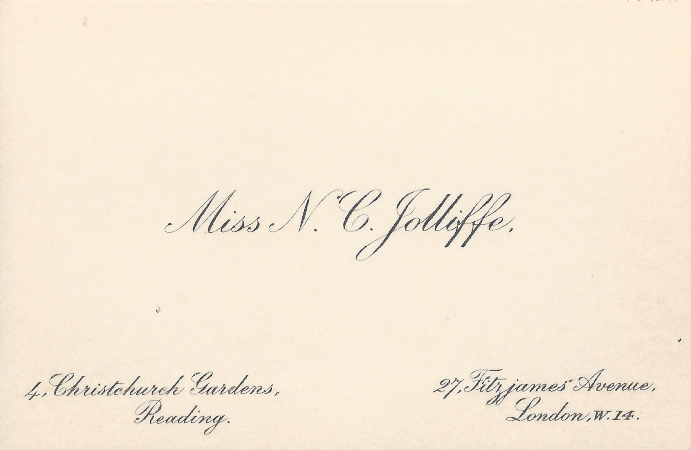 Miss N. C. Jolliffe.
4, Christchurch Gardens,
Reading.
27, Fitzjames' Avenue,
London, W.14.